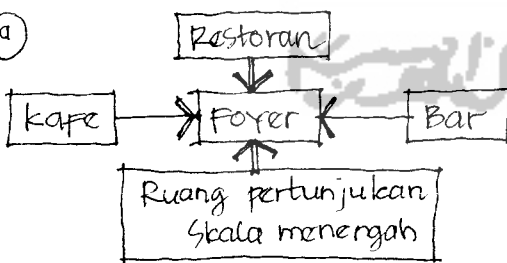 a
Restoran
Kafe
Foyer
Bar
Ruang pertunjukan
Skala menengah